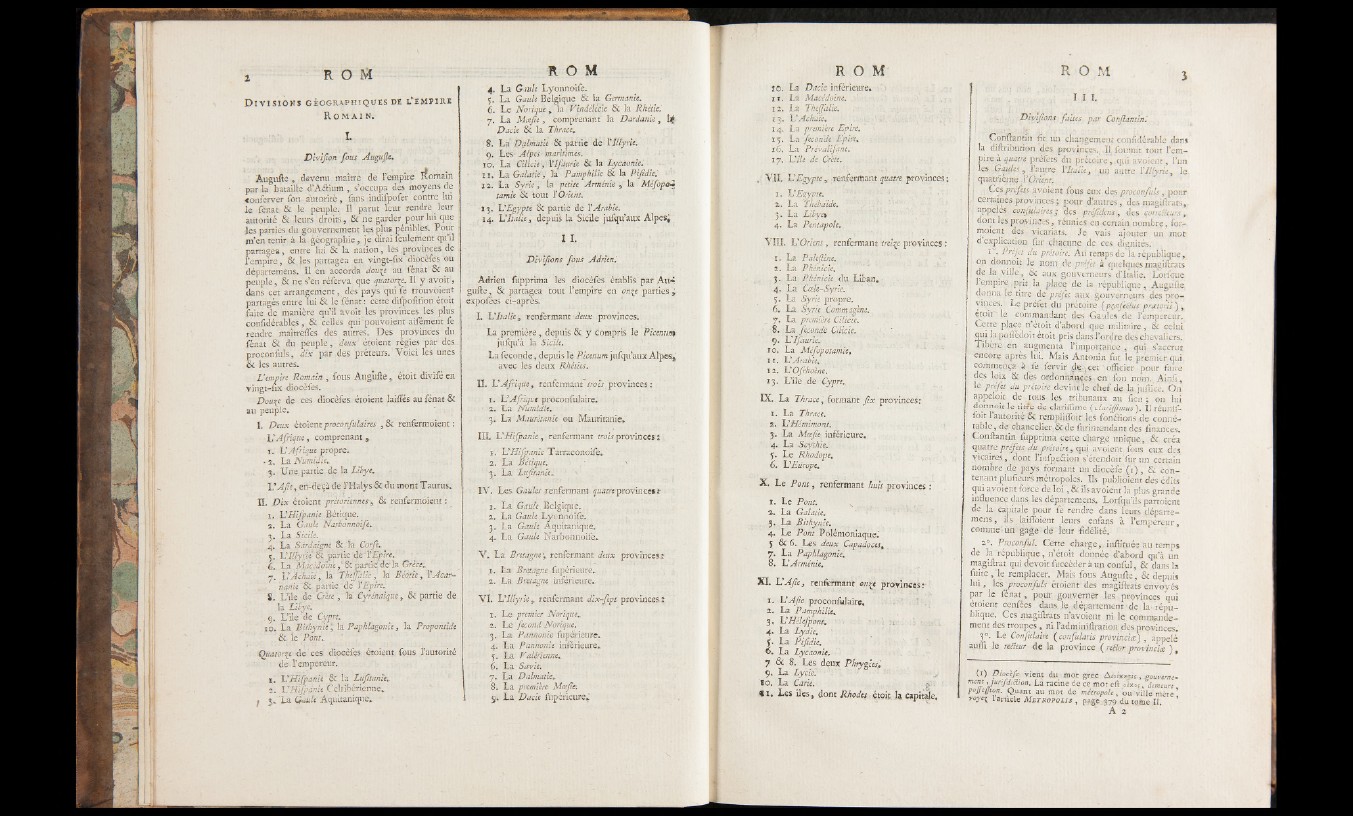 2 R O M
DIVISIONS GÉOGRAPHIQUES DE L'EMPIRE
ROMAIN.
I.
Division sous Auguste.
Auguste, devenu maître de l'empire Romain
par la bataille d'Actium, s'occupa des moyens de
conserver son autorité, sans indisposer contre lui
le sénat & le peuple. Il parut leur rendre leur
autorité & leurs droits, & ne garder pour lui que
les parties du gouvernement les plus pénibles. Pour
m'en tenir à la géographie, je dirai seulement qu'il
partagea, entre lui & la nation, les provinces de
l'empire, & les partagea en vingt-six diocèses ou
départemens. Il en accorda douze au sénat & au
peuple, & ne s'en réserva que quatorze. Il y avoit,
dans cet arrangement, des pays qui se trouvoient
partagés entre lui & le sénat: cette disposition étoit
faite de manière qu'il avoit les provinces les plus
considérables, & celles qui pouvoient aisément se
rendre maîtresses des autres. Des provinces du
sénat & du peuple, deux étoient régies par des
proconsuls, dix par des préteurs. Voici les unes
& les autres.
L'empire Romain, sous Auguste, étoit divisé en
vingt-six diocèses.
Douze de ces diocèses étoient laissés au sénat &
au peuple.
I. Deux étoient proconsulaires, & renfermoient:
L'Afrique, comprenant,
1. L'Afrique propre.
2. La Numidie.
3. Une partie de la Libye.
L'Asie, en-deçà de l'Halys & du mont Taurus.
II. Dix étoient prétoriennes, & renfermoient:
1. L'Hispanie Bétique.
2. La Gaule Narbonnoise.
3. La Sicile.
4. La Sardaigne & la Corse.
5. L'Illyrie & partie de l'Epire.
6. La Macédoine, & partie de la Grèce.
7. L'Achaie, la Thessalie, la Béotie, l'Acar-
nanie & partie de l'Epire.
8. L'île de Crète, la Cyrénaïque, & partie de
la Libye.
9. L'île de Cypre.
10. La Bithynie, la Paphlagonie, la Propontide
& le Pont.
Quatorze de ces diocèses étoient sous l'autorité
de l'empereur.
1. L'Hispanie & la Lusitanie.
2. L'Hispanie Celtibérienne.
3. La Gaule Aquitanique.
R O M
4. La Gaule Lyonnoise.
5. La Gaule Belgique & la Germanie.
6. Le Norique, la Vindélicie & la Rhétie.
7. La Mœsie, comprenant la Dardanie, la
Dacie & la Thrace.
8. La Dalmatie & partie de l'Illyrie.
9. Les Alpes maritimes.
10. La Cilicie, l'Isaurie & la Lycaonie.
11. La Galatie, la Pamphilie & la Pisidie.
12. La Syrie, la petite Arménie, la Mésopo-
tamie & tout l'Orient.
13. L'Egypte & partie de l'Arabie.
14. L'Italie, depuis la Sicile jusqu'aux Alpes.
I I.
Divisions sous Adrien.
Adrien supprima les diocèses établis par Au-
guste, & partagea tout l'empire en onze parties,
exposées ci-après.
I. L'Italie, renfermant deux provinces.
La première, depuis & y compris le Picenum
jusqu'à la Sicile.
La seconde, depuis le Picenum jusqu'aux Alpes,
avec les deux Rhéties.
II. L'Afrique, renfermant trois provinces:
1. L'Afrique proconsulaire.
2. La Numidie.
3. La Mauritanie ou Mauritanie.
III. L'Hispanie, renfermant trois provinces:
1. L'Hispanie Tarraconoise.
2. La Bétique.
3. La Lusitanie.
IV. Les Gaules renfermant quatre provinces:
1. La Gaule Belgique.
2. La Gaule Lyonnoise.
3. La Gaule Aquitanique.
4. La Gaule Narbonnoise.
V. La Bretagne, renfermant deux provinces:
1. La Bretagne supérieure.
2. La Bretagne inférieure.
VI. L'Illyrie, renfermant dix-sept provinces:
1. Le premier Norique.
2. Le second Norique.
3. La Pannonie supérieure.
4. La Pannonie inférieure.
5. La Valérienne.
6. La Savie.
7. La Dalmatie.
8. La première Mœsie.
9. La Dacie supérieure.
R O M
10. La Dacie inférieure.
11. La Macédoine.
12. La Thessalie.
13. L'Achaie.
14. La première Epire.
15. La seconde Epire.
16. La Prévalitane.
17. L'île de Crète.
VII. L'Egypte, renfermant quatre provinces:
1. L'Egypte.
2. La Thébaïde.
3. La Libye.
4. La Pentapole.
VIII. L'Orient, renfermant treize provinces:
1. La Palestine.
2. La Phénicie.
3. La Phénicie du Liban.
4. La Cœle-Syrie.
5. La Syrie propre.
6. La Syrie Commagène.
7. La première Cilicie.
8. La seconde Cilicie.
9. L'Isaurie.
10. La Mésopotamie.
11. L'Arabie.
12. L'Osrhoène.
13. L'île de Cypre.
IX. La Thrace, formant six provinces:
1. La Thrace.
2. L'Hémimont.
3. La Mœsie inférieure.
4. La Scythie.
5. Le Rhodope.
6. L'Europe.
X. Le Pont, renfermant huit provinces:
1. Le Pont.
2. La Galatie.
3. La Bithynie.
4. Le Pont Polémoniaque.
5 & 6. Les deux Capadoces.
7. La Paphlagonie.
8. L'Arménie.
XI. L'Asie, renfermant onze provinces:
1. L'Asie proconsulaire.
2. La Pamphilie.
3. L'Hélespont.
4. La Lydie.
5. La Pisidie.
6. La Lycaonie.
7 & 8. Les deux Phrygies.
9. La Lycie.
10. La Carie.
11. Les îles, dont Rhodes étoit la capitale.
R O M 3
I I I.
Divisions faites par Constantin.
Constantin fit un changement considérable dans
la distribution des provinces. Il soumit tout l'em-
pire à quatre préfets du prétoire, qui avoient, l'un
les Gaules, l'autre l'Italie, un autre l'Illyrie, le
quatrième l'Orient.
Ces préfets avoient sous eux des proconsuls, pour
certaines provinces; pour d'autres, des magistrats,
appelés consulaires; des présidens, des correcteurs,
dont les provinces, réunies en certain nombre, for-
moient des vicariats. Je vais ajouter un mot
d'explication sur chacune de ces dignités.
1°. Préfet du prétoire. Au temps de la république,
on donnoit le nom de préfet à quelques magistrats
de la ville, & aux gouverneurs d'Italie. Lorsque
l'empire prit la place de la république, Auguste
donna le titre de préfet aux gouverneurs des pro-
vinces. Le préfet du prétoire (præfectus prætorii),
étoit le commandant des Gardes de l'empereur.
Cette place n'étoit d'abord que militaire, & celui
qui la possédoit étoit pris dans l'ordre des chevaliers.
Tibère en augmenta l'importance, qui s'accrut
encore après lui. Mais Antonin fut le premier qui
commença à se servir de cet officier pour faire
des loix & des ordonnances en son nom. Ainsi,
le préfet du prétoire devint le chef de la justice. On
appeloit de tous les tribunaux au sien; on lui
donnoit le titre de clarissime (clarissimus). Il réunis-
soit l'autorité & remplissoit les fonctions de conné-
table, de chancelier & de surintendant des finances.
Constantin supprima cette charge unique, & créa
quatre préfets du prétoire, qui avoient sous eux des
vicaires, dont l'inspection s'étendoit sur un certain
nombre de pays formant un diocèse (1), & con-
tenant plusieurs métropoles. Ils publioient des édits
qui avoient force de loi, & ils avoient la plus grande
influence dans les départemens. Lorsqu'ils partoient
de la capitale pour se rendre dans leurs départe-
mens, ils laissoient leurs enfans à l'empereur,
comme un gage de leur fidélité.
2°. Proconsul. Cette charge, instituée au temps
de la république, n'étoit donnée d'abord qu'à un
magistrat qui devoit succéder à un consul, & dans la
suite, le remplacer. Mais sous Auguste, & depuis
lui, les proconsuls étoient des magistrats envoyés
par le sénat, pour gouverner les provinces qui
étoient censées dans le département de la répu-
blique. Ces magistrats n'avoient ni le commande-
ment des troupes, ni l'administration des provinces.
3°. Le Consulaire (consularis provinciæ), appelé
aussi le recteur de la province (rector provinciæ).
(1) Diocèse vient du mot grec Διοίκησις, gouverne-
ment, jurisdiction. La racine de ce mot est οἶκος, demeure,
possession. Quant au mot de métropole, ou ville mère,
voyez l'article METROPOLIS, page 379 du tome II.
A 2